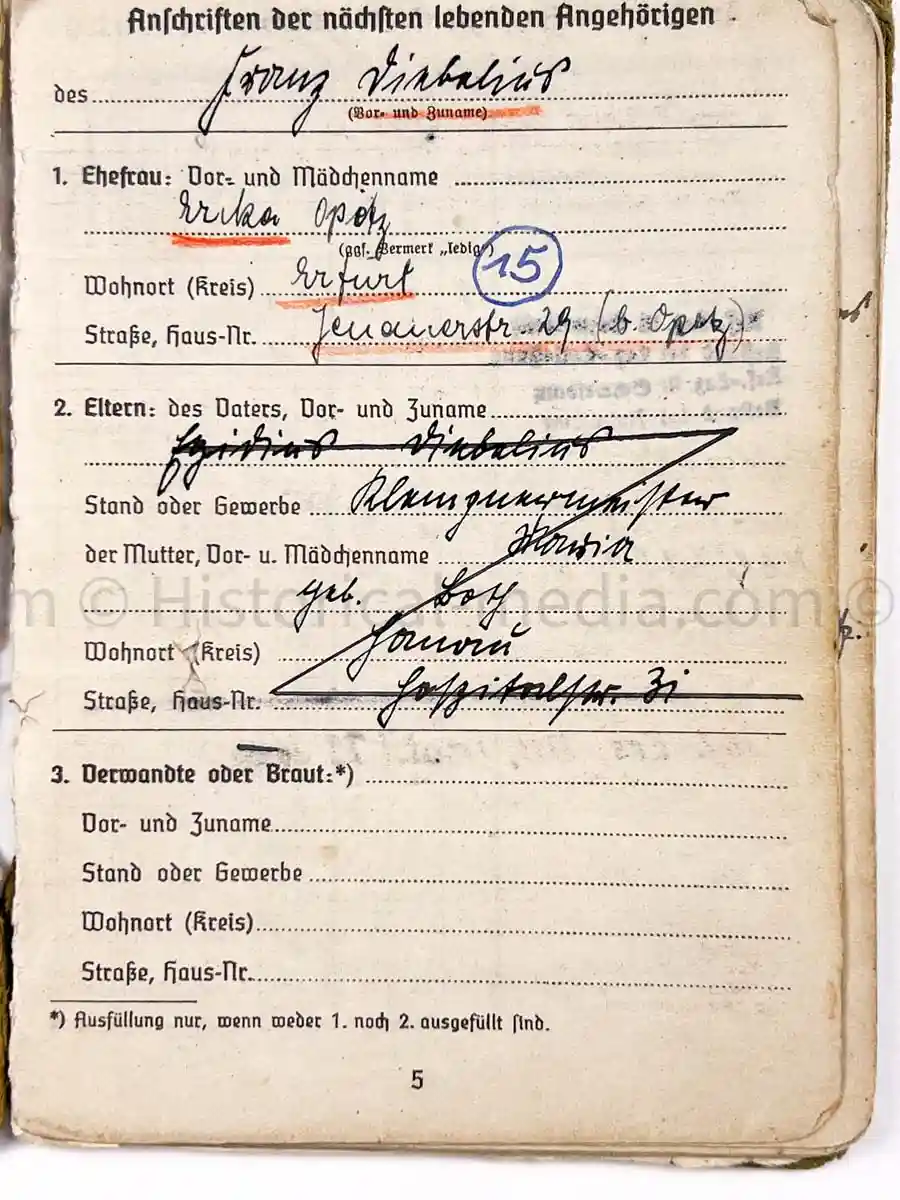 Anschriften der nächsten lebenden Angehörigen
des Franz Diebelius
(Vor- und Zuname)
1. Ehefrau: Vor- und Mädchenname
Erika Opetz
(ggf. Vermerk „ledig“)
15
Wohnort (Kreis) Erfurt
Straße, Haus-Nr. Jenauerstr. 29 (b. Opetz)
2. Eltern: des Vaters, Vor- und Zuname
Egidius Diebelius
Stand oder Gewerbe Klempnermeister
der Mutter, Vor- u. Mädchenname Maria
geb.
© Historical-media.com ©
Wohnort (Kreis) Hanau
Straße, Haus-Nr. Hospitalstr.
3. Verwandte oder Braut:*)
Vor- und Zuname
Stand oder Gewerbe
Wohnort (Kreis)
Straße, Haus-Nr.
*) Ausfüllung nur, wenn weder 1. noch 2. ausgefüllt sind.
5